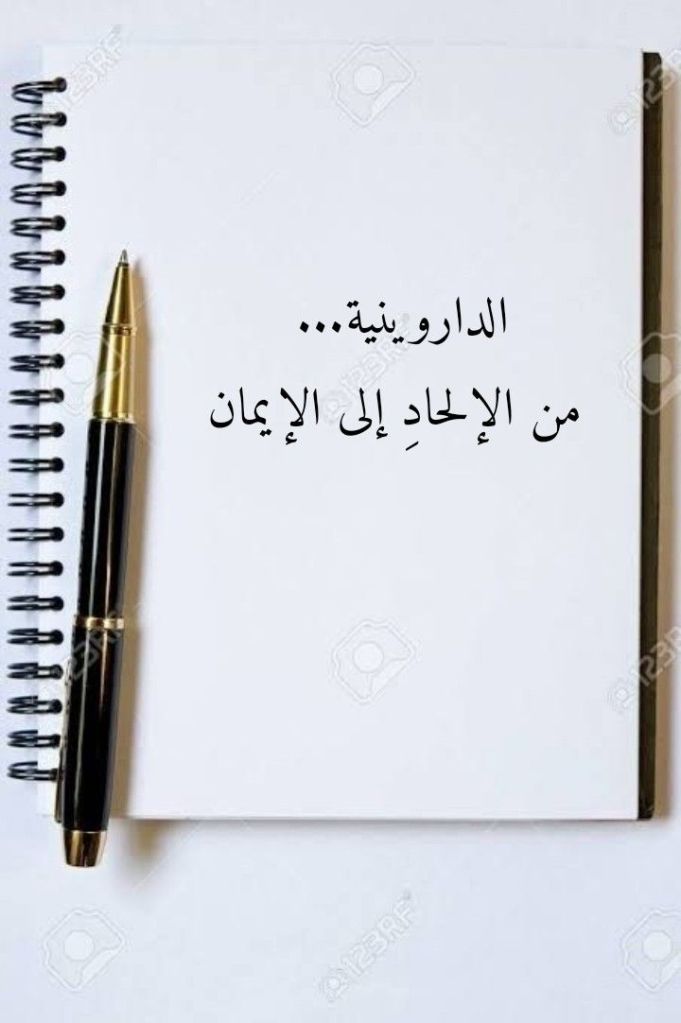 الداروينية...
من الإلحادِ إلى الإيمان
123RF
123RF
123RF
123RF
123RF
123RF